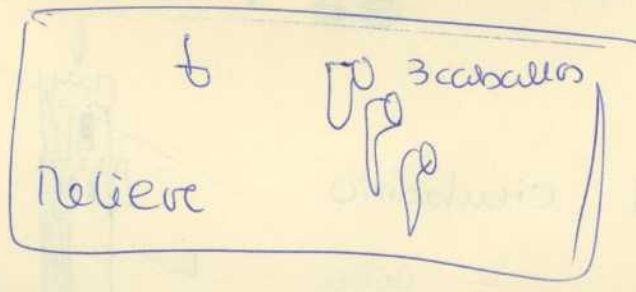 3 caballos
Relieve